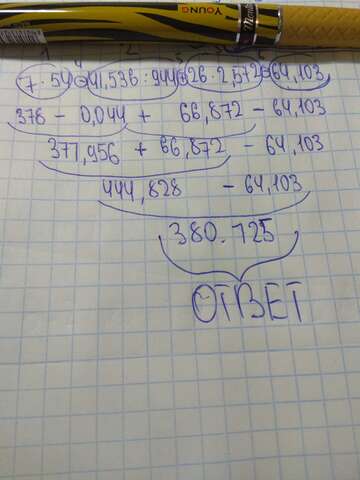 YOUNG
1 4 2 5 3 6
7 · 54 - 41,536 : 944 + 26 · 2,572 - 64,103
378 - 0,044 + 66,872 - 64,103
377,956 + 66,872 - 64,103
444,828 - 64,103
380.725
ОТВЕТ